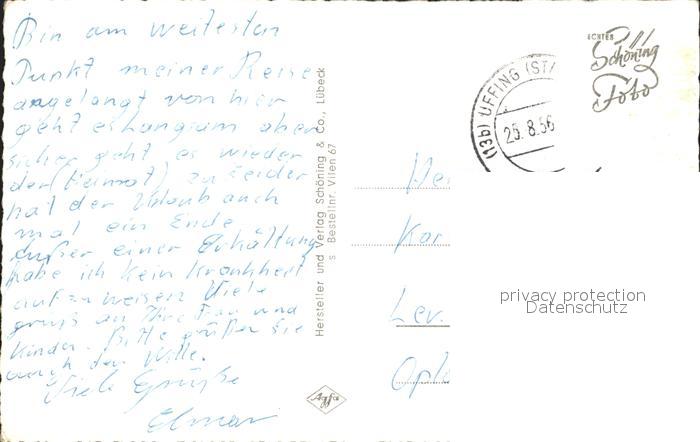 Bin am weitesten
Punkt meiner Reise
angelangt von hier
geht es langsam aber
sicher geht es wieder
der (Heimat) zu leider
hat der Urlaub auch
mal ein Ende
außer einer Erkältung
habe ich kein Krankheit
aufzuweisen Viele
grüß an Ihre Frau und
Kinder. Bitte grüßen Sie
auch den Wille.
Viele Grüße
Elmar
Hersteller und Verlag Schöning & Co., Lübeck
s Bestellnr. Vilen 67
Agfa
ECHTES
Schöning
Foto
(13b) UFFING (STA
25.8.56
He
Kar
Lev.
Opla
privacy protection
Datenschutz